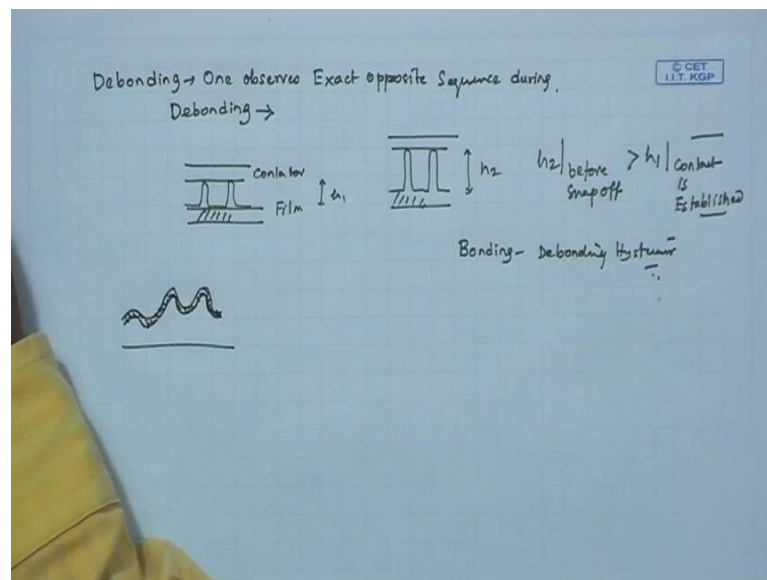 Debonding → One observes Exact opposite Sequence during
Debonding →
© CET
I.I.T. KGP
Contactor
Film
h1
h2
h2 | before snap off > h1 | Contact is Established
Bonding - Debonding